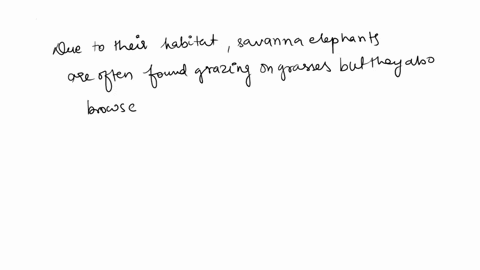 Due to their habitat, savanna elephants
are often found grazing on grasses but they also
browse